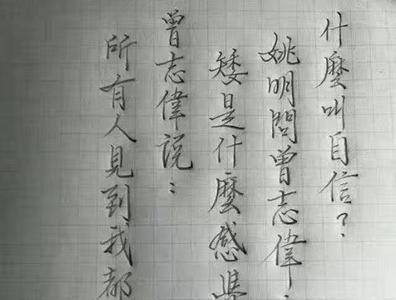 什麼叫自信?
姚明問曾志偉:
矮是什麼感
曾志偉說:
所有人見到我都